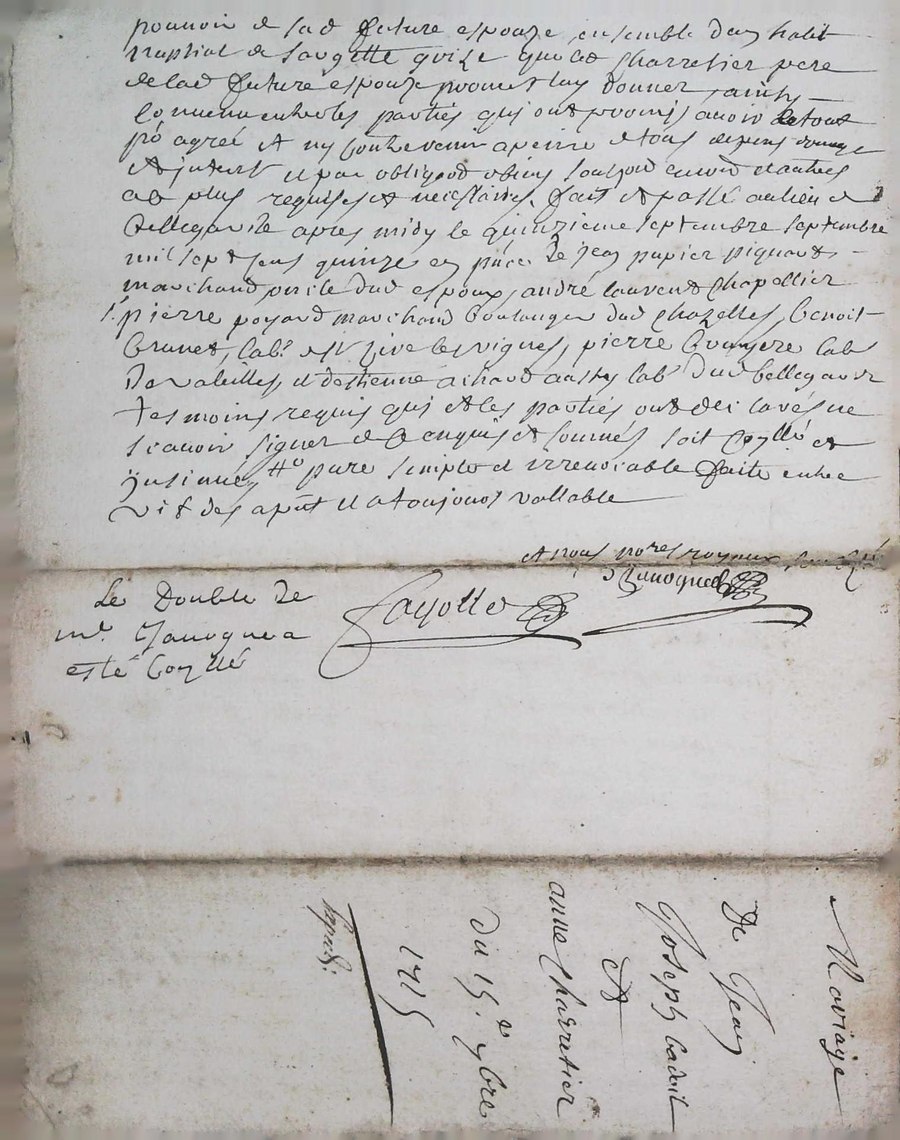 pouvoir de lad future espouze ensemble d'un habit
nuptial de sargette grize que led Charretier pere
de lad future espouze promet luy donner ainsy
convenu entre les parties qui ont promis avoir le tout
agreé et ny contrevenir a peine de tous despens domage
et interest obligaon
plus requises et necessaires fait et passé au lieu de
Bellegarde apres midy le quinzieme septembre septembre
mil sept sens quinze en pñce de Jean papier pignard
marchand oncle dud espoux, andré laurent Chapellier
pierre poyard marchand boulanger dud Chazelles, benoit
brunet, labr les vignes, pierre bruyere lab
et destienne lab dud bellegarde
tesmoins requis qui et les partiés ont declarés ne
scavoir signer de ce enquis et sommés soit Coñllé et
insinué pure simple et irrevocable faite entre
vifs des a pñt et a toujours vallable
et nous nores royaux
Janoguel
Fayolle
Le Double de
mr. Janogue a
esté Coñllé
Mariage
De Jean
Joseph Cadoit
Et
anne Charretier
du 15e 7bre
1715